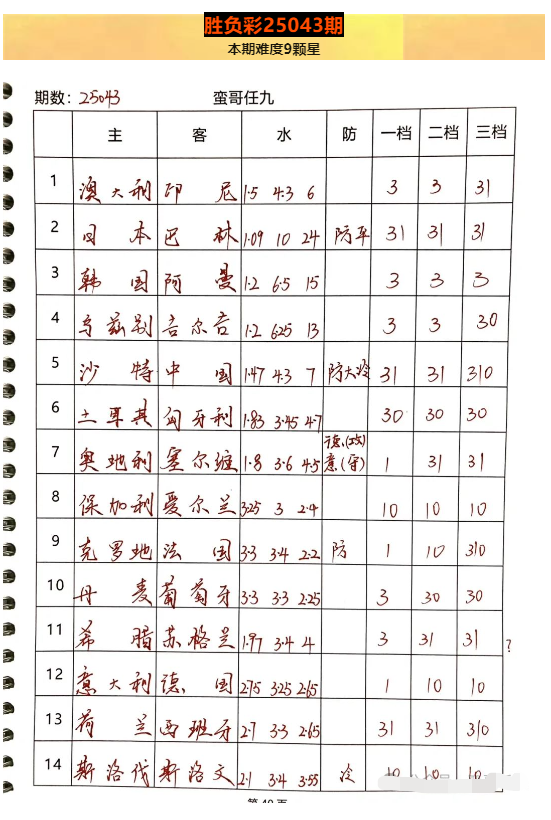 胜负彩25043期
本期难度9颗星
期数：25043 蛮哥任九
主 客 水 防 一档 二档 三档
1 澳大利 印尼 1.5 4.3 6 3 3 31
2 日本 巴林 1.09 10 24 防平 31 31 31
3 韩国 阿曼 1.2 6.5 15 3 3 3
4 乌兹别 吉尔吉 1.2 6.25 13 3 3 30
5 沙特 中国 1.47 4.3 7 防大冷 31 31 310
6 土耳其 匈牙利 1.83 3.45 4.7 30 30 30
7 奥地利 塞尔维 1.8 3.6 4.5 德(攻) 意(守) 1 31 31
8 保加利 爱尔兰 3.25 3 2.4 10 10 10
9 克罗地 法国 3.3 3.4 2.2 防 1 10 310
10 丹麦 葡萄牙 3.3 3.3 2.25 3 30 30
11 希腊 苏格兰 1.97 3.4 4 3 31 31 ?
12 意大利 德国 2.75 3.25 2.65 1 10 10
13 荷兰 西班牙 2.7 3.3 2.65 31 31 310
14 斯洛伐 斯洛文 2.1 3.4 3.55 冷 10 10 10